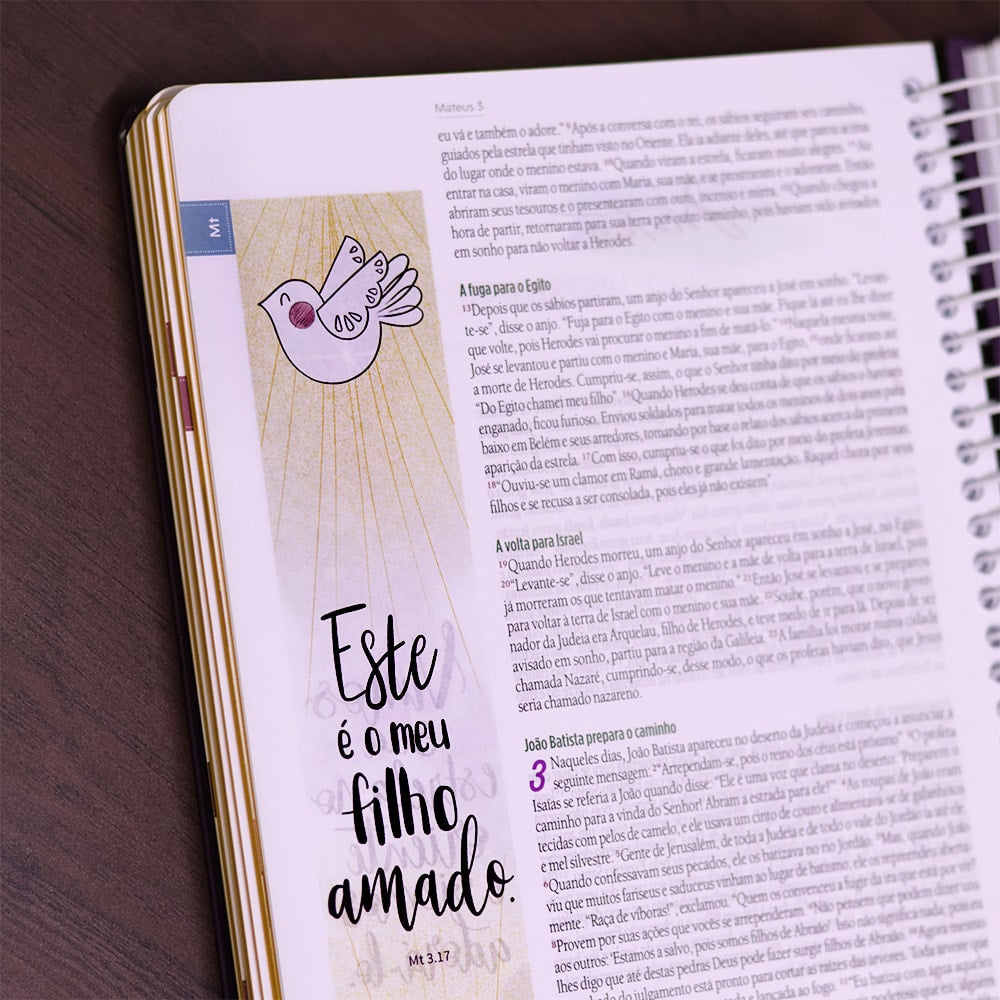 Mateus 3
Mt
eu vá e também o adore.” ⁹Após a conversa com o rei, os sábios seguiram seu caminho,
guiados pela estrela que tinham visto no Oriente. Ela ia adiante deles, até que parou acima
do lugar onde o menino estava. ¹⁰Quando viram a estrela, ficaram muito alegres. ¹¹Ao
entrar na casa, viram o menino com Maria, sua mãe, e se prostraram e o adoraram. Então
abriram seus tesouros e o presentearam com ouro, incenso e mirra. ¹²Quando chegou a
hora de partir, retornaram para sua terra por outro caminho, pois haviam sido avisados
em sonho para não voltar a Herodes.
A fuga para o Egito
¹³Depois que os sábios partiram, um anjo do Senhor apareceu a José em sonho. “Levan-
te-se”, disse o anjo. “Fuja para o Egito com o menino e sua mãe. Fique lá até eu lhe dizer
que volte, pois Herodes vai procurar o menino a fim de matá-lo.” ¹⁴Naquela mesma noite,
José se levantou e partiu com o menino e Maria, sua mãe, para o Egito, ¹⁵onde ficaram até
a morte de Herodes. Cumpriu-se, assim, o que o Senhor tinha dito por meio do profeta:
“Do Egito chamei meu filho”. ¹⁶Quando Herodes se deu conta de que os sábios o haviam
enganado, ficou furioso. Enviou soldados para matar todos os meninos de dois anos para
baixo em Belém e seus arredores, tomando por base o relato dos sábios acerca da primeira
aparição da estrela. ¹⁷Com isso, cumpriu-se o que foi dito por meio do profeta Jeremias:
¹⁸“Ouviu-se um clamor em Ramá, choro e grande lamentação. Raquel chora por seus
filhos e se recusa a ser consolada, pois eles já não existem”.
A volta para Israel
¹⁹Quando Herodes morreu, um anjo do Senhor apareceu em sonho a José, no Egito.
²⁰“Levante-se”, disse o anjo. “Leve o menino e a mãe de volta para a terra de Israel, pois
já morreram os que tentavam matar o menino.” ²¹Então José se levantou e se preparou
para voltar à terra de Israel com o menino e sua mãe. ²²Soube, porém, que o novo gover-
nador da Judeia era Arquelau, filho de Herodes, e teve medo de ir para lá. Depois de ser
avisado em sonho, partiu para a região da Galileia. ²³A família foi morar numa cidade
chamada Nazaré, cumprindo-se, desse modo, o que os profetas haviam dito, que Jesus
seria chamado nazareno.
João Batista prepara o caminho
3 Naqueles dias, João Batista apareceu no deserto da Judeia e começou a anunciar a
seguinte mensagem: ²“Arrependam-se, pois o reino dos céus está próximo”. ³O profeta
Isaías se referia a João quando disse: “Ele é uma voz que clama no deserto: ‘Preparem o
caminho para a vinda do Senhor! Abram a estrada para ele!’”. ⁴As roupas de João eram
tecidas com pelos de camelo, e ele usava um cinto de couro e alimentava-se de gafanhotos
e mel silvestre. ⁵Gente de Jerusalém, de toda a Judeia e de todo o vale do Jordão ia até ele.
⁶Quando confessavam seus pecados, ele os batizava no rio Jordão. ⁷Mas, quando João
viu que muitos fariseus e saduceus vinham ao lugar de batismo, ele os repreendeu aberta-
mente. “Raça de víboras!”, exclamou. “Quem os convenceu a fugir da ira que está por vir?
⁸Provem por suas ações que vocês se arrependeram. ⁹Não pensem que podem dizer uns
aos outros: ‘Estamos a salvo, pois somos filhos de Abraão’. Isso não significa nada, pois eu
lhes digo que até destas pedras Deus pode fazer surgir filhos de Abraão. ¹⁰Agora mesmo
o machado do julgamento está pronto para cortar as raízes das árvores. Toda árvore que
e lançada ao fogo. ¹¹“Eu batizo com água aqueles
Este
é o meu
filho
amado.
Mt 3.17